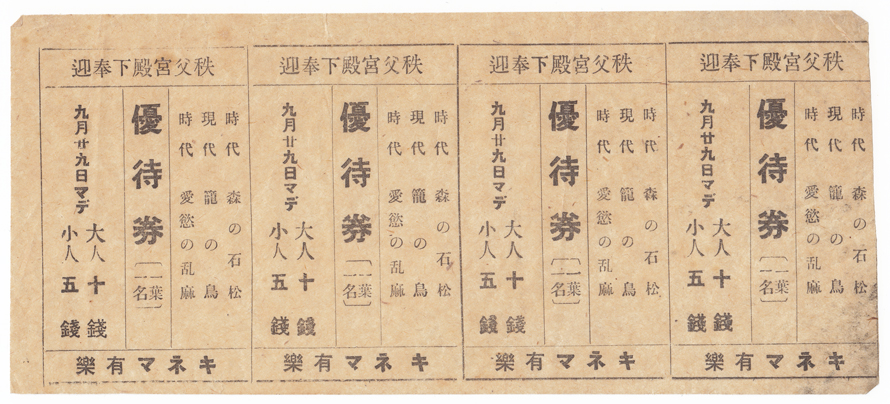 秩父宮殿下奉迎
時代 森の石松
現代 籠の鳥
時代 愛慾の乱麻
優待券〔一葉一名〕
九月廿九日マデ
大人十錢
小人五錢
キネマ有樂
秩父宮殿下奉迎
時代 森の石松
現代 籠の鳥
時代 愛慾の乱麻
優待券〔一葉一名〕
九月廿九日マデ
大人十錢
小人五錢
キネマ有樂
秩父宮殿下奉迎
時代 森の石松
現代 籠の鳥
時代 愛慾の乱麻
優待券〔一葉一名〕
九月廿九日マデ
大人十錢
小人五錢
キネマ有樂
秩父宮殿下奉迎
時代 森の石松
現代 籠の鳥
時代 愛慾の乱麻
優待券〔一葉一名〕
九月廿九日マデ
大人十錢
小人五錢
キネマ有樂